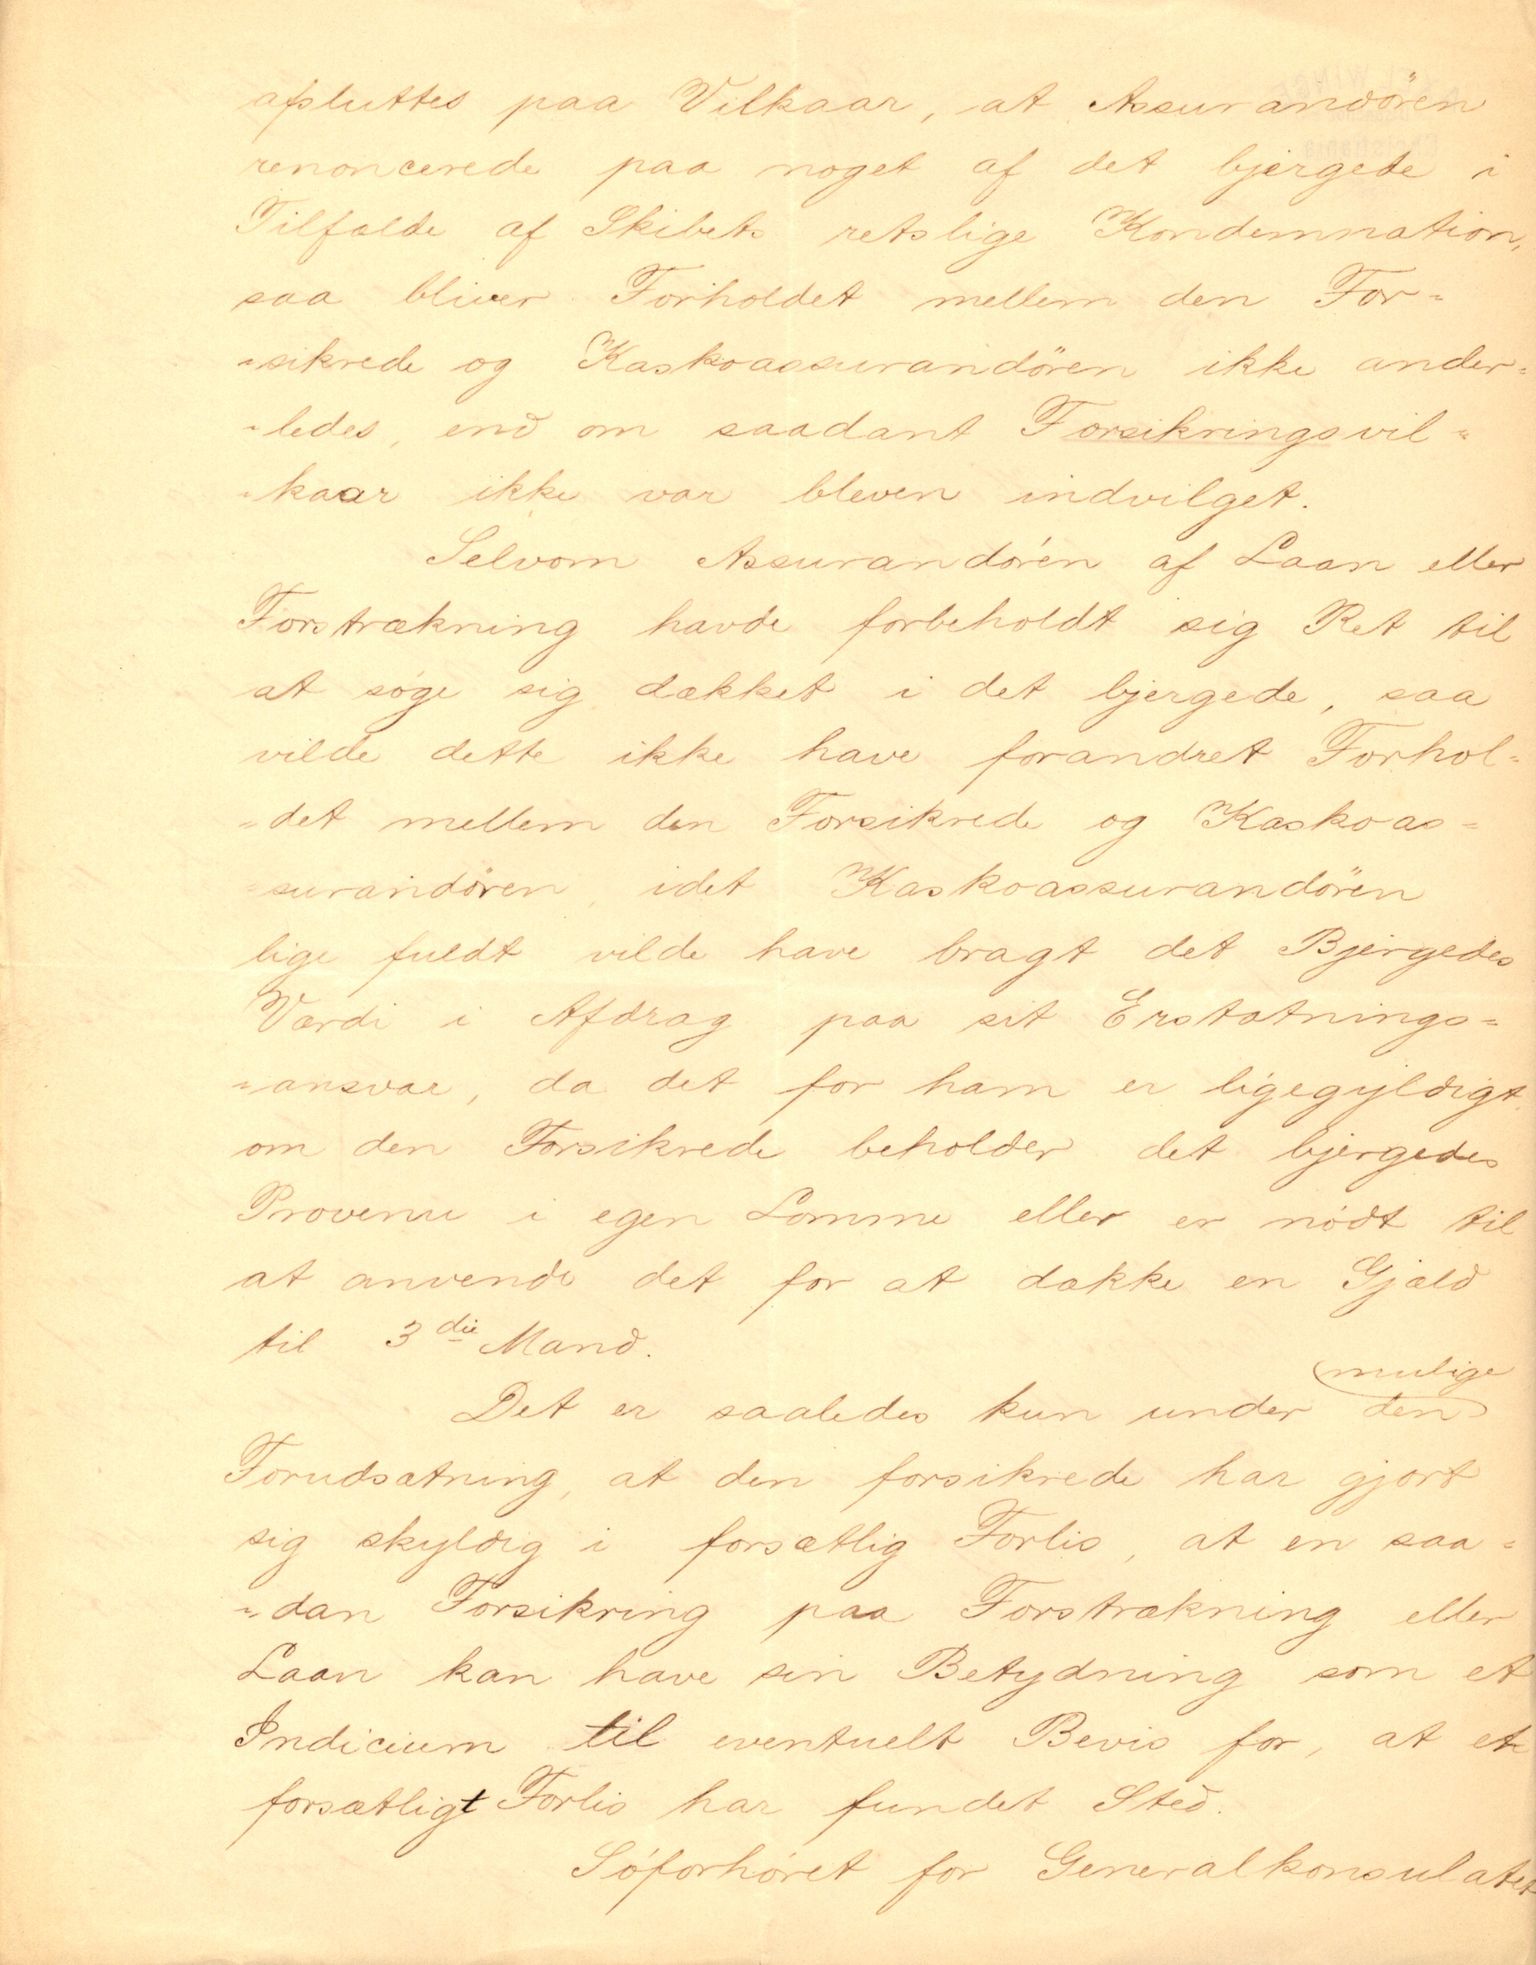 afsluttes paa Vilkaar, at Assurandören
renoncerede paa noget af det bjergede i
Tilfælde af Skibets retslige Kondemnation,
saa bliver Forholdet mellem den For-
-sikrede og Kaskoassurandören ikke ander-
-ledes, end om saadant Forsikringsvil-
-kaar ikke var bleven indvilget.
Selvom Assurandóren af Laan eller
Forstrækning havde forbeholdt sig Ret til
at søge sig dækket i det bjergede, saa
vilde dette ikke have forandret Forhol-
-det mellem den Forsikrede og Kaskoas-
-surandören, idet Kaskoassurandören
lige fuldt vilde have bragt det Bjergedes
Værdi i Afdrag paa sit Erstatnings-
-ansvar, da det for ham er ligegyldigt,
om den Forsikrede beholder det bjergedes
Provenu i egen Lomme eller er nódt til
at anvende det for at dække en Gjæld
til 3die Mand.
mulige
Det er saaledes kun under den
Forudsætning, at den forsikrede har gjort
sig skyldig i forsætlig Forlis, at en saa-
-dan Forsikring paa Forstrækning eller
Laan kan have sin Betydning som et
Indicium til eventuelt Bevis for, at et
forsætligt Forlis har fundet Sted.
Sóforhóret for Generalkonsulatet